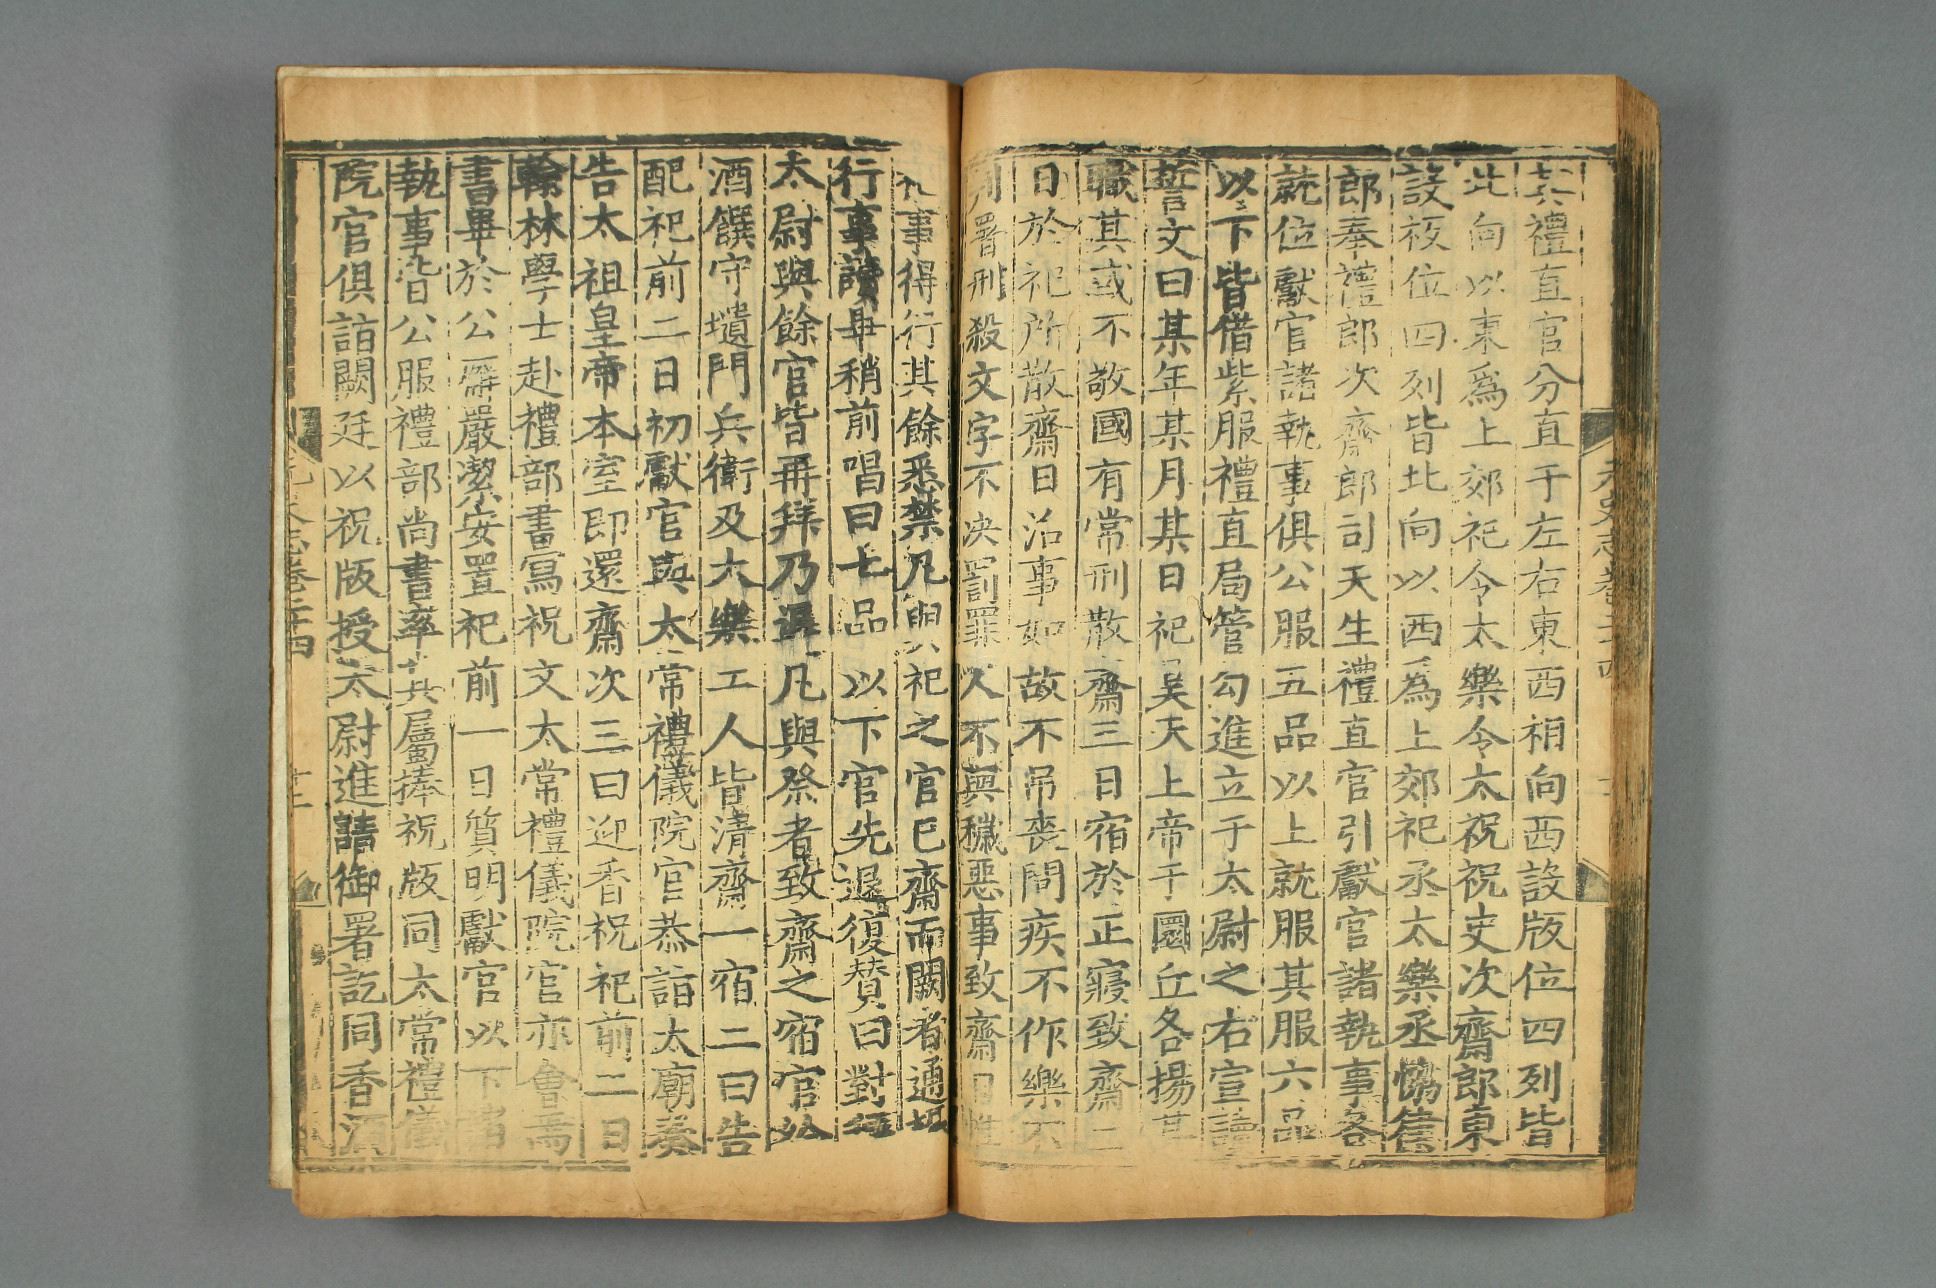 其禮直官分直于左右東西相向西設版位四列皆
北向以東爲上郊祀令太樂令太祝祝史次齋郎東
設版位四列皆北向以西爲上郊祀丞太樂丞協律
郎奉禮郎次齋郎司天生禮直官引獻官諸執事各
就位獻官諸執事俱公服五品以上就服其服六品
以下皆借紫服禮直局管勾進立于太尉之右宣讀
誓文曰某年某月某日祀昊天上帝于圜丘各揚其
職其或不敬國有常刑散齋三日宿於正寢致齋二
日於祀所散齋日治事如故不弔喪問疾不作樂不
判署刑殺文字不決罰罪人不與穢惡事致齋日惟
祀事得行其餘悉禁凡與祀之官已齋而闕者通攝
行事讀畢稍前唱曰七品以下官先退復贊曰對拜
太尉與餘官皆再拜乃退凡與祭者致齋之宿官給
酒饌守壝門兵衛及大樂工人皆清齋一宿二曰告
配祀前二日初獻官與太常禮儀院官恭詣太廟奏
告太祖皇帝本室即還齋次三曰迎香祝祀前二日
翰林學士赴禮部書寫祝文太常禮儀院官亦會焉
書畢於公廨嚴潔安置祀前一日質明獻官以下諸
執事皆公服禮部尚書率其屬捧祝版同太常禮儀
院官俱詣闕廷以祝版授太尉進請御署訖同香酒
元史志卷二十四
元史志卷二十四
十二